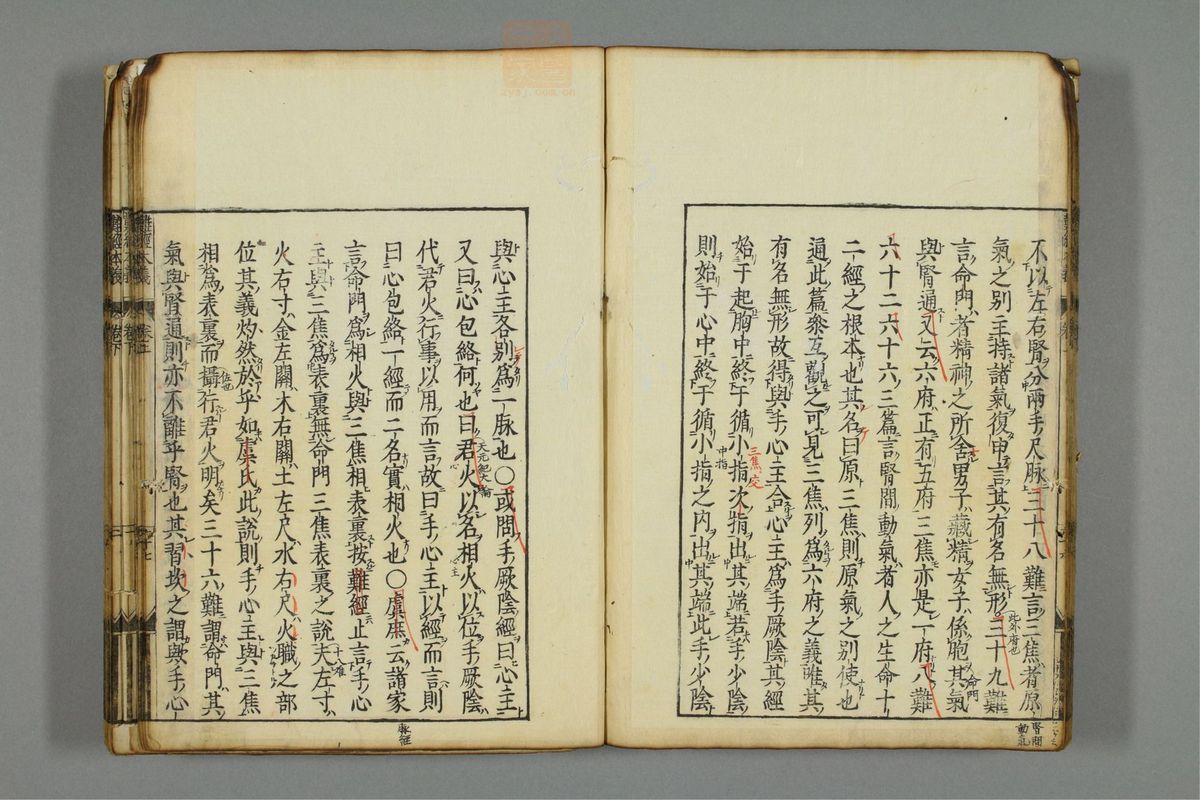 不以左右腎分兩手尺脉三十八難言三焦者原
氣之別主持諸氣復申言其有名無形三十九難
言命門者精神之所舍男子藏精女子係胞其氣
與腎通又云六府正有五府三焦亦是一府八難
六十二六十六三篇言腎間動氣者人之生命十
二經之根本也其名曰原三焦則原氣之別使也
通此篇參互觀之可見三焦列爲六府之義唯其
有名無形故得與手心主合心主爲手厥陰其經
始于起胸中終于循小指次指出其端若手少陰
則始于心中終于循小指之内出其端此手少陰
與心主各別爲一脉也○或問手厥陰經曰心主
又曰心包絡何也曰君火以名相火以位手厥陰
代君火行事以用而言故曰手心主以經而言則
曰心包絡一經而二名實相火也○虞庶云諸家
言命門爲相火與三焦相表裏按難經止言手心
主與三焦爲表裏無命門三焦表裏之說夫左寸
火右寸金左關木右關土左尺水右尺火職之部
位其義灼然於乎如虞氏此說則手心主與三焦
相爲表裏而攝行君火明矣三十六難謂命門其
氣與腎通則亦不離乎腎也其習坎之謂與手心
此外府也
命門
腎間
動氣
三焦交
中指
天元紀大論
心主
脉經
難經本義
zysj.com.cn